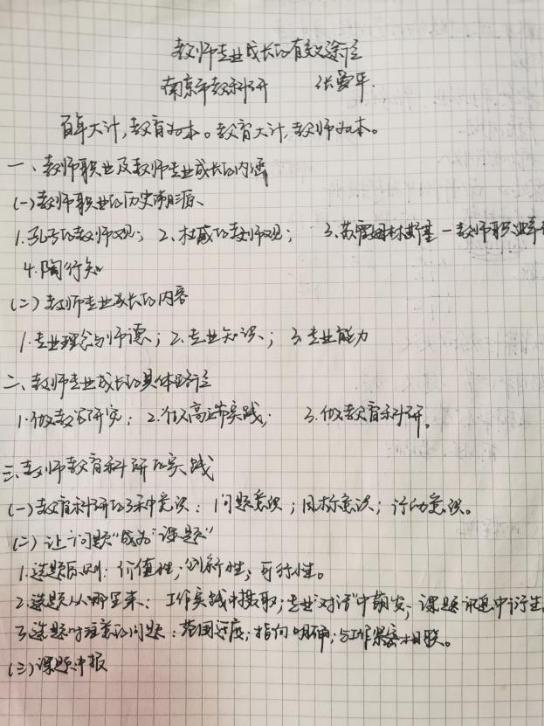 教师专业成长的有效途径
南京市教科研 张
百年大计,教育为本。教育大计,教师为本。
一、教师职业及教师专业成长的内涵
(一)教师职业的历史溯源、
1.孔子的教师观; 2.杜威的教师观; 3.苏霍姆林斯基一教师职业
4.陶行知
(二)教师专业成长的内容
1.专业理念与师德;2.专业知识;3.专业能力
二、教师专业成长的具体路径
1.做教学研究; 2.做高效实践; 3.做教育科研。
三、教师教育科研的实践
(一)教育科研的3种意识:问题意识;目标意识;行动意识。
(二)让"问题"成为"课题"
1.选题原则:价值性;创新性;可行性。
2.选题从哪里来:工作实践中提取;专业"对话"中萌发;课题 中衍生
3.选题时注意的问题:范围适度;指向明确;与工作紧密相联。
(三)课题申报